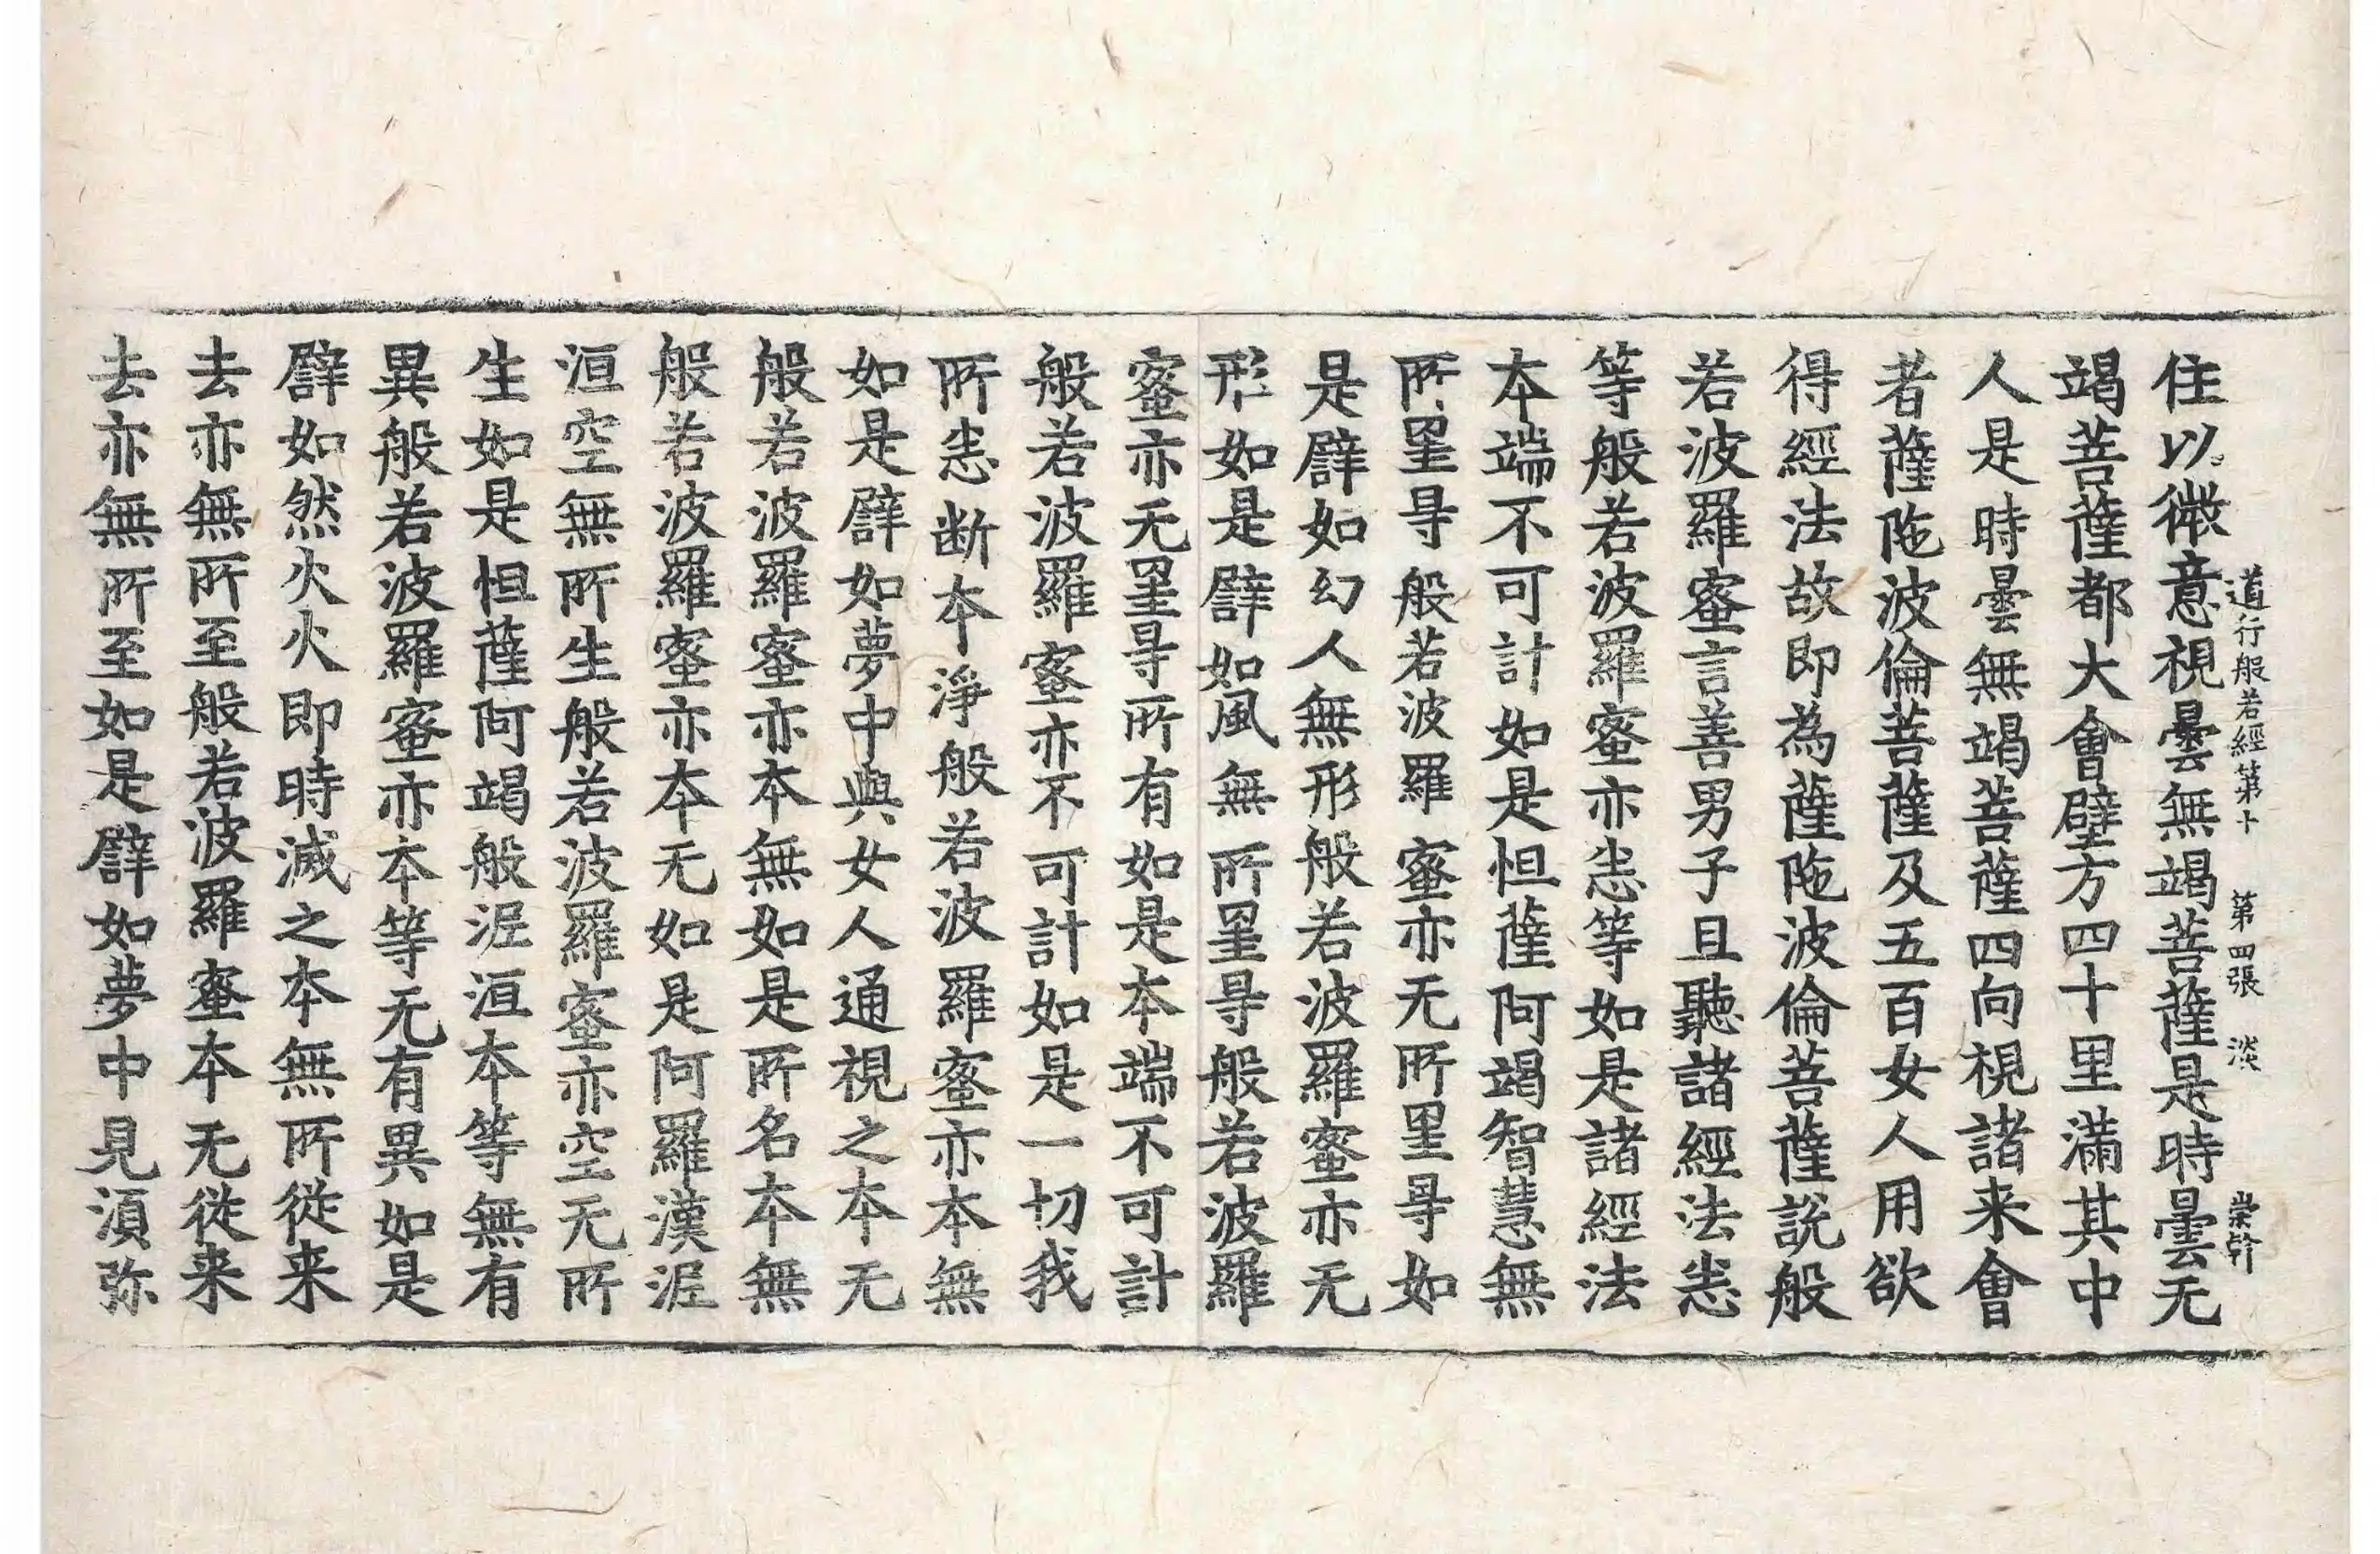 道行般若經第十 第四張 淡 崇幹
住以微意視曇無竭菩薩是時曇无
竭菩薩都大會壁方四十里滿其中
人是時曇無竭菩薩四向視諸来會
者薩陁波倫菩薩及五百女人用欲
得經法故即為薩陁波倫菩薩說般
若波羅蜜言善男子且聽諸經法悉
等般若波羅蜜亦悉等如是諸經法
本端不可計如是怛薩阿竭智慧無
所罣㝵般若波羅蜜亦无所罣㝵如
是譬如幻人無形般若波羅蜜亦无
形如是譬如風無所罣㝵般若波羅
蜜亦无罣㝵所有如是本端不可計
般若波羅蜜亦不可計如是一切我
所悉断本淨般若波羅蜜亦本無
如是譬如夢中與女人通視之本无
般若波羅蜜亦本無如是所名本無
般若波羅蜜亦本无如是阿羅漢泥
洹空無所生般若波羅蜜亦空无所
生如是怛薩阿竭般泥洹本等無有
異般若波羅蜜亦本等无有異如是
譬如然火火即時滅之本無所從来
去亦無所至般若波羅蜜本无從来
去亦無所至如是譬如夢中見湏弥